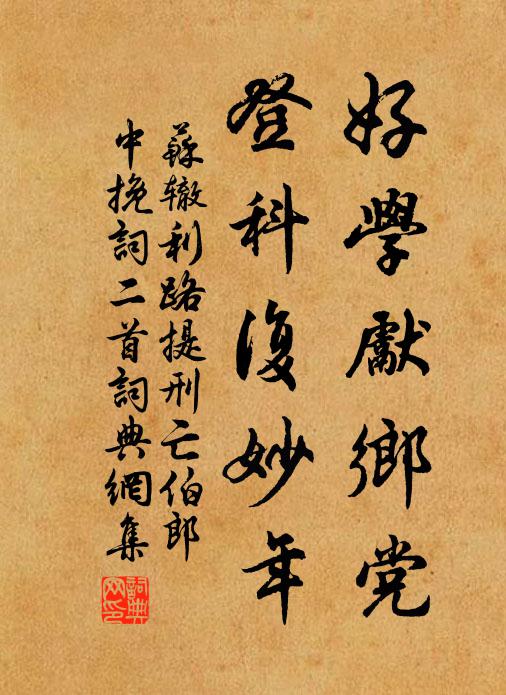 好學獻鄉党
登科復妙年
蘇辙利路提刑亡伯郎
中挽詞二首詞典網集
詞典
网印